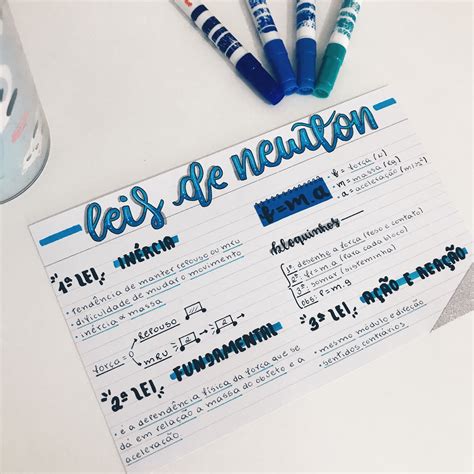 leis de newton
1ª LEI
INÉRCIA
• tendência de manter repouso ou meu
• dificuldade de mudar o movimento
• inércia α massa
força
repouso
meu
2ª LEI
FUNDAMENTAL
• é a dependência física da força que se
dá em relação a massa do objeto e a
aceleração.
F = m.a
• F = força (N)
• m = massa (kg)
• a = aceleração (m/s²)
bloquinhos
1º desenho a força (peso e contato)
2º Fr = m.a (para cada bloco)
3º somar (sisteminha)
obs: P = m.g
3ª LEI
AÇÃO E REAÇÃO
• mesmo módulo e direção
• sentidos contrários.